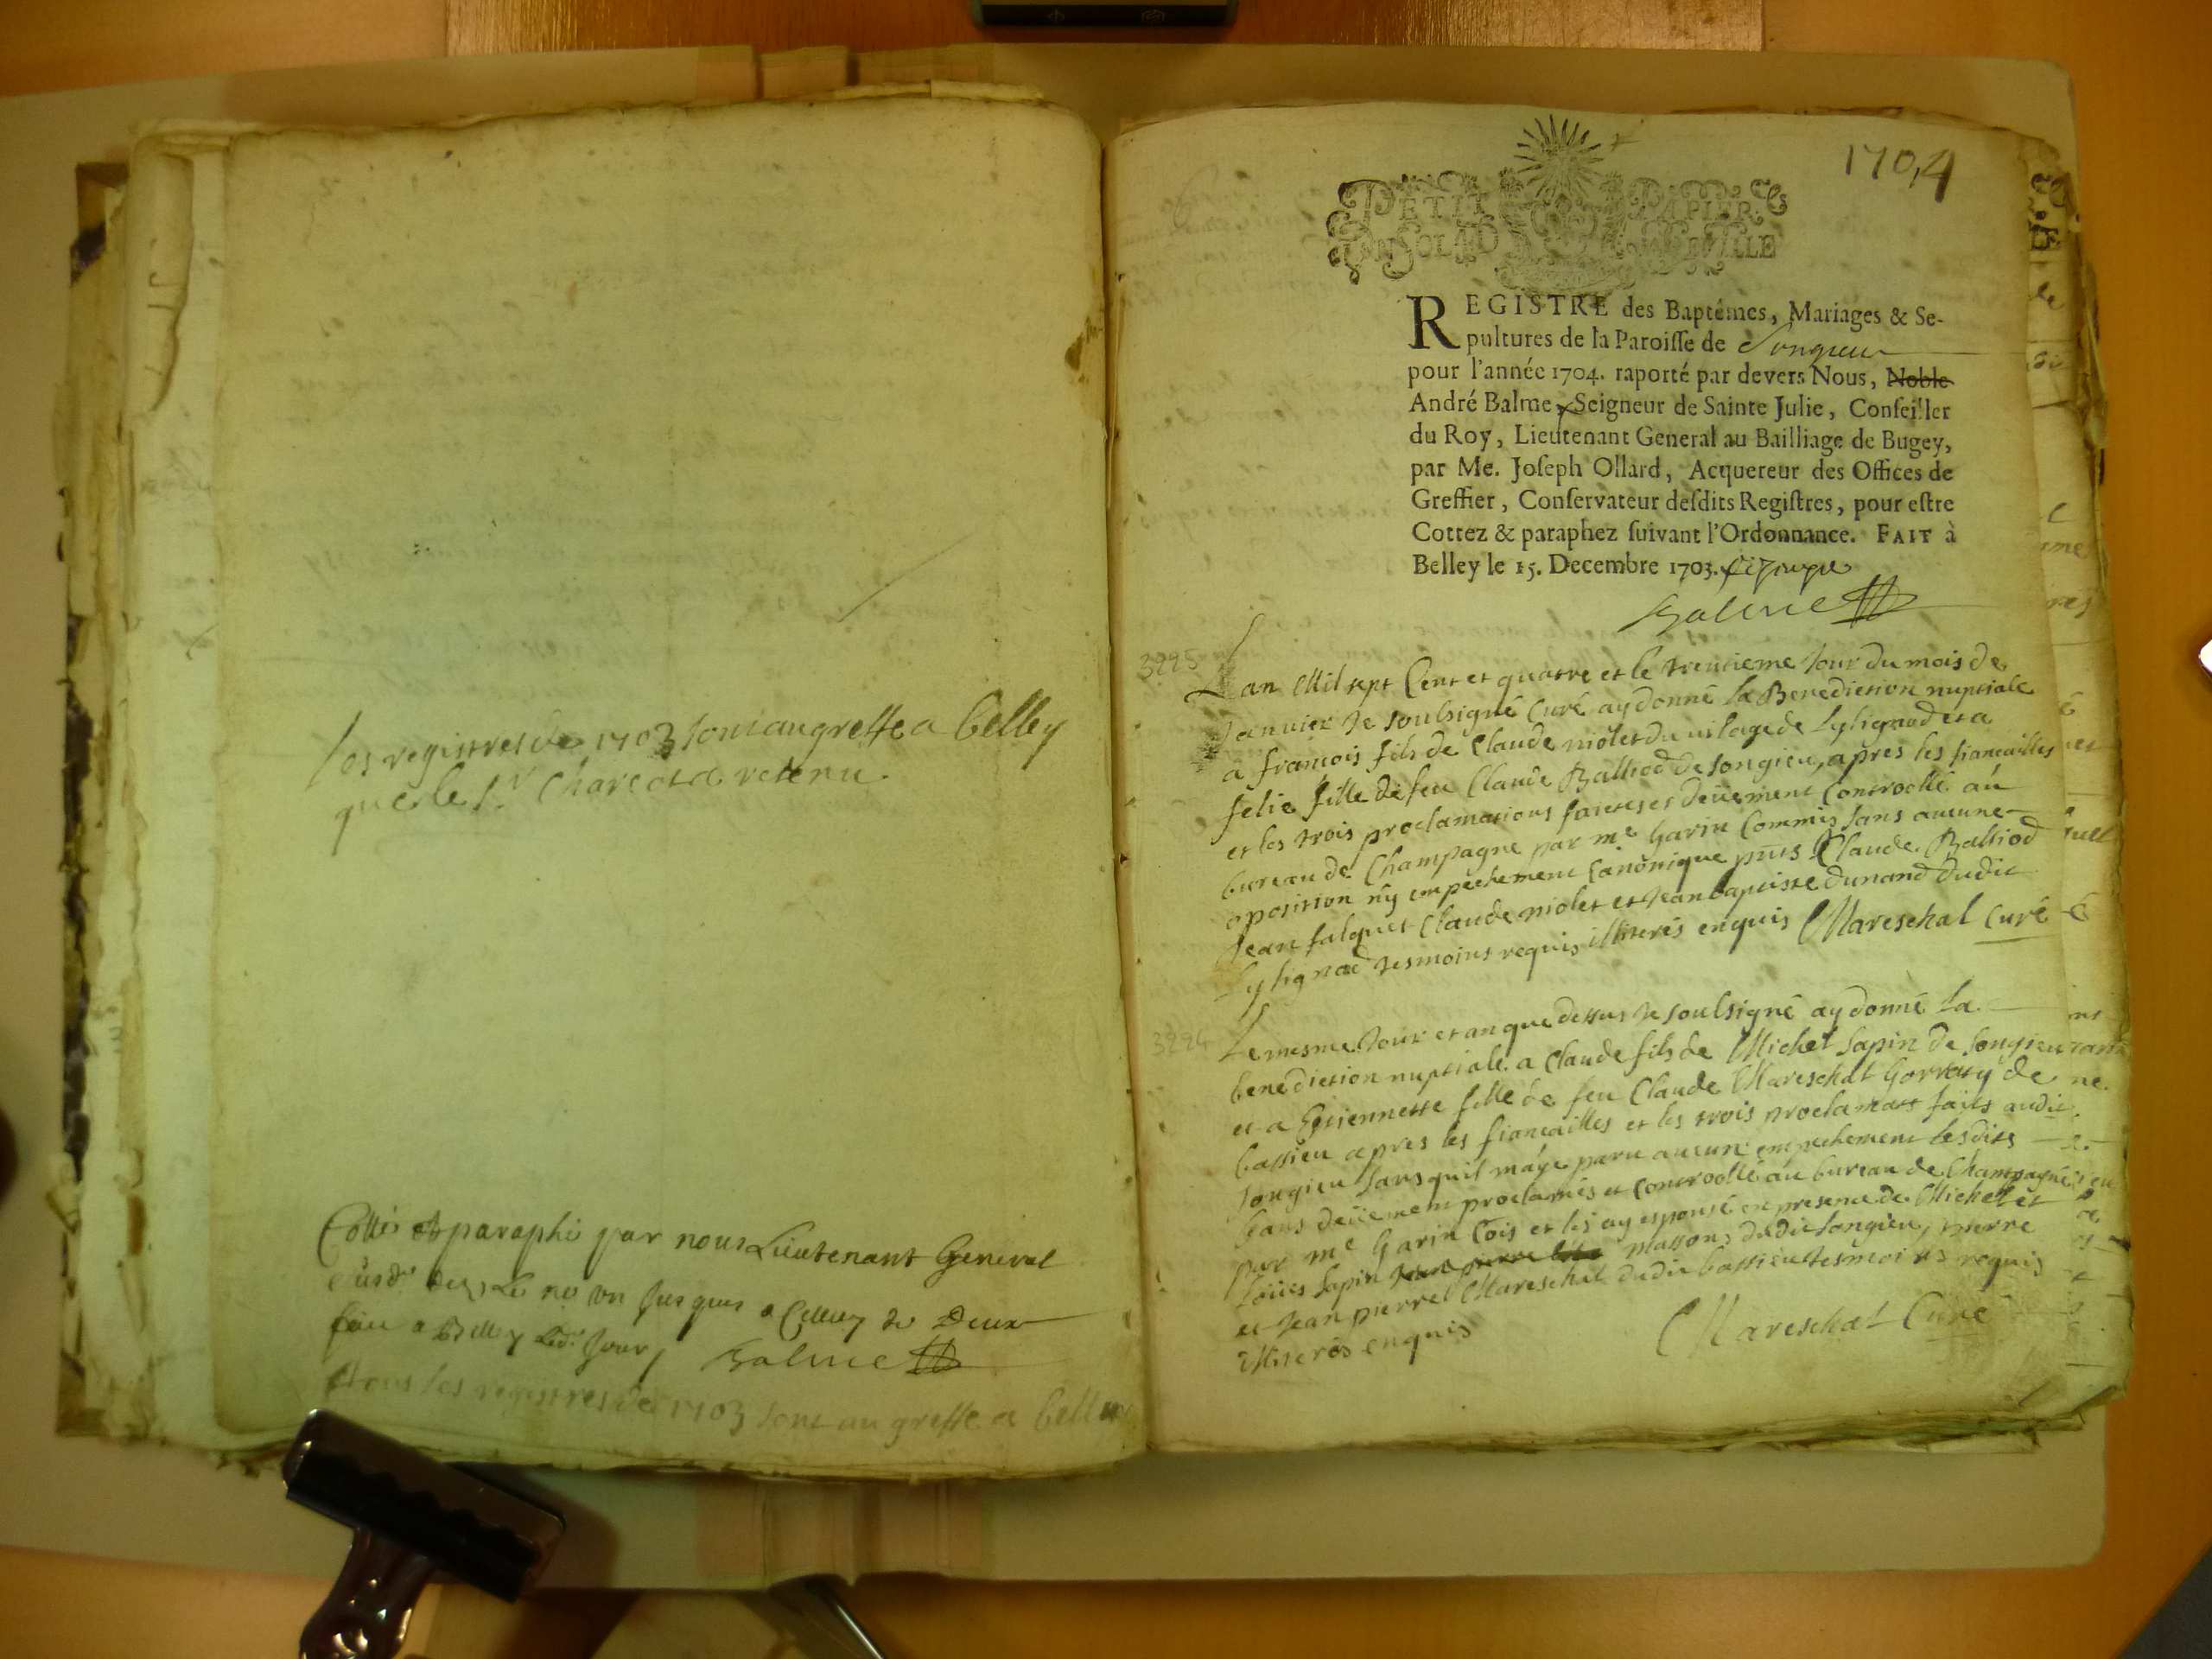 Les registres de 1703 sont au greffe a belley
que le Sr Charcot a retenu
Cottés et paraphé par nous Lieutenant General
fait a Belley led. Jour Balme
tous les registres de 1703 sont au greffe a belley
1704
PETIT PAPIER
UN SOL LA FEUILLE
REGISTRE des Baptêmes, Mariages & Se-
pultures de la Paroisse de Songieu
pour l'année 1704. raporté par devers Nous, Noble
André Balme, Seigneur de Sainte Julie, Conseiller
du Roy, Lieutenant General au Bailliage de Bugey,
par Me. Joseph Ollard, Acquereur des Offices de
Greffier, Conservateur desdits Registres, pour estre
Cottez & paraphez suivant l'Ordonnance. FAIT à
Belley le 15. Decembre 1703.
Balme
3225
Lan Mil sept Cent et quatre et le trentieme Jour du mois de
Janvier Je soubsigné Curé ay donné la Benediction nuptiale
a francois fils de Claude niolet du vilage de Lylignod et a
felie fille de feu Claude Balliod de songieu, apres les fiancailles
et les trois proclamations faictes et deüement Controollé au
bureau de Champagne par me Garin Commis sans aucune
oposition ny empechement Canonique pnts Claude Balliod
Jean falquet Claude niolet et Jean baptiste dunand dudit
Lylignod tesmoins requis illiterés enquis Mareschal Curé
3226
Le mesme Jour et an que dessus Je soubsigné ay donné la
benediction nuptiale a Claude fils de Michel Sapin de Songieu
et a Estiennette fille de feu Claude Mareschal Gorraty de
bassieu apres les fiancailles et les trois proclamats faits audit
Songieu sans quil maye paru aucun empechement lesdits
bans deüement proclamés et Controollé au bureau de Champagne
par me Garin Cois et les ay espousé en presence de Michel et
Loüis Sapin massons dudit songieu, pierre
et Jean pierre Mareschal dudit bassieu tesmoins requis
illiterés enquis Mareschal Curé